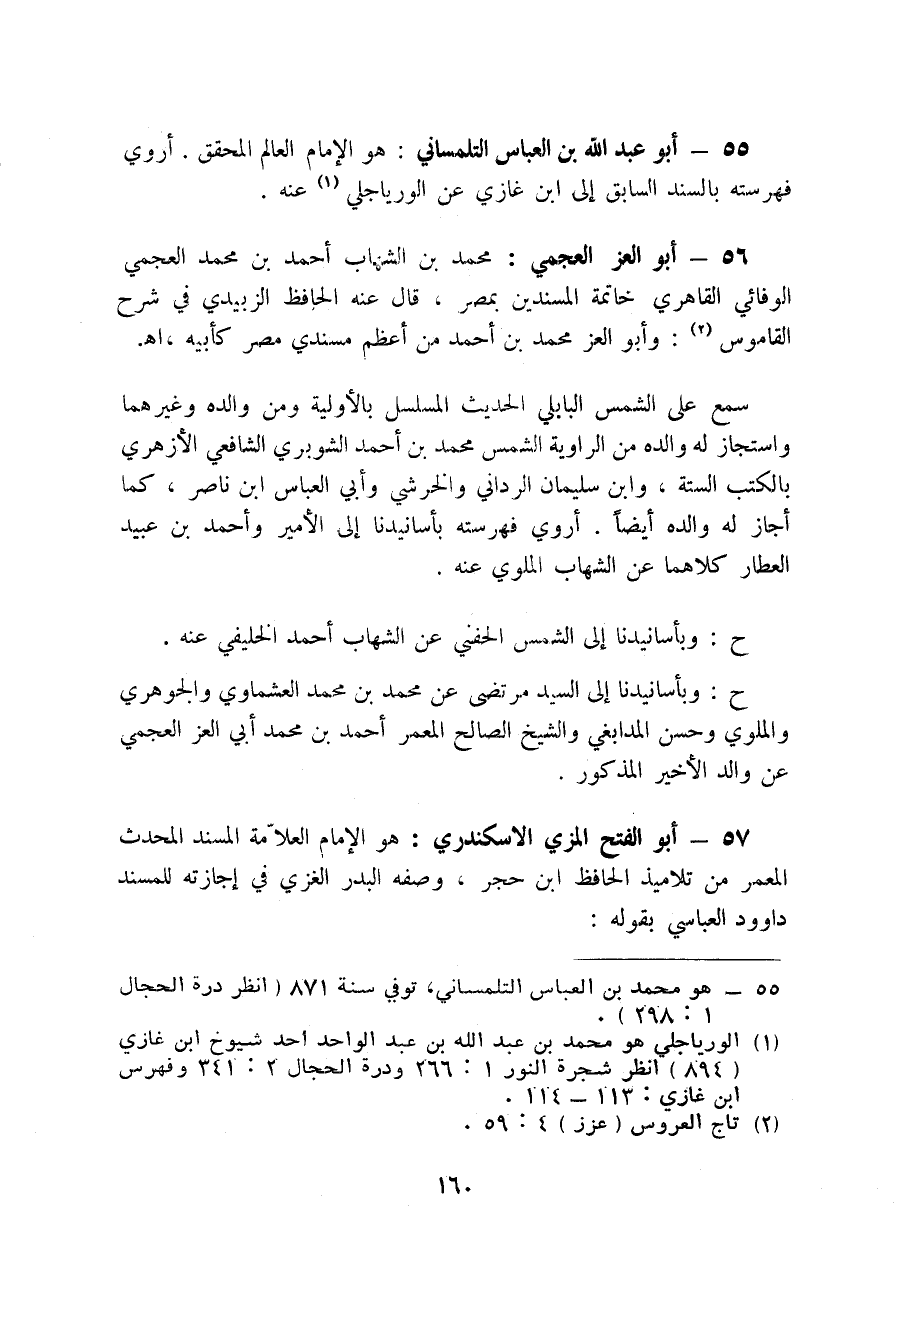 ٥٥ — أبو عبد الله بن العباس التلمساني : هو الإمام العالم المحقق . أروي
فهرسته بالسند السابق إلى ابن غازي عن الورياجلي (١) عنه .
٥٦ — أبو العز العجمي : محمد بن الشهاب أحمد بن محمد العجمي
الوفائي القاهري خاتمة المسندين بمصر ، قال عنه الحافظ الزبيدي في شرح
القاموس (٢) : وأبو العز محمد بن أحمد من أعظم مسندي مصر كأبيه ،اهـ.
سمع على الشمس البابلي الحديث المسلسل بالأولية ومن والده وغيرهما
واستجاز له والده من الراوية الشمس محمد بن أحمد الشوبري الشافعي الأزهري
بالكتب الستة ، وابن سليمان الرداني والخرشي وأبي العباس ابن ناصر ، كما
أجاز له والده أيضاً . أروي فهرسته بأسانيدنا إلى الأمير وأحمد بن عبيد
العطار كلاهما عن الشهاب الملوي عنه .
ح : وبأسانيدنا إلى الشمس الحفني عن الشهاب أحمد الخليفي عنه .
ح : وبأسانيدنا إلى السيد مرتضى عن محمد بن محمد العشماوي والجوهري
والملوي وحسن المدابغي والشيخ الصالح المعمر أحمد بن محمد أبي العز العجمي
عن والد الأخير المذكور .
٥٧ — أبو الفتح المزي الاسكندري : هو الإمام العلاّمة المسند المحدث
المعمر من تلاميذ الحافظ ابن حجر ، وصفه البدر الغزي في إجازته للمسند
داوود العباسي بقوله :
٥٥ — هو محمد بن العباس التلمساني، توفي سنة ٨٧١ ( انظر درة الحجال
١ : ٢٩٨ ) .
(١) الورياجلي هو محمد بن عبد الله بن عبد الواحد احد شيوخ ابن غازي
( ٨٩٤ ) انظر شجرة النور ١ : ٢٦٦ ودرة الحجال ٢ : ٣٤١ وفهرس
ابن غازي : ١١٣ — ١١٤ .
(٢) تاج العروس ( عزز ) ٤ : ٥٩ .
١٦٠